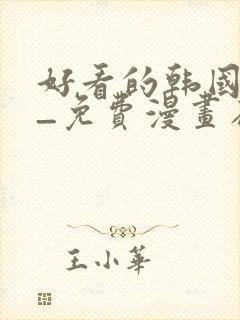 好看的韩國
—免費漫畫
王小華